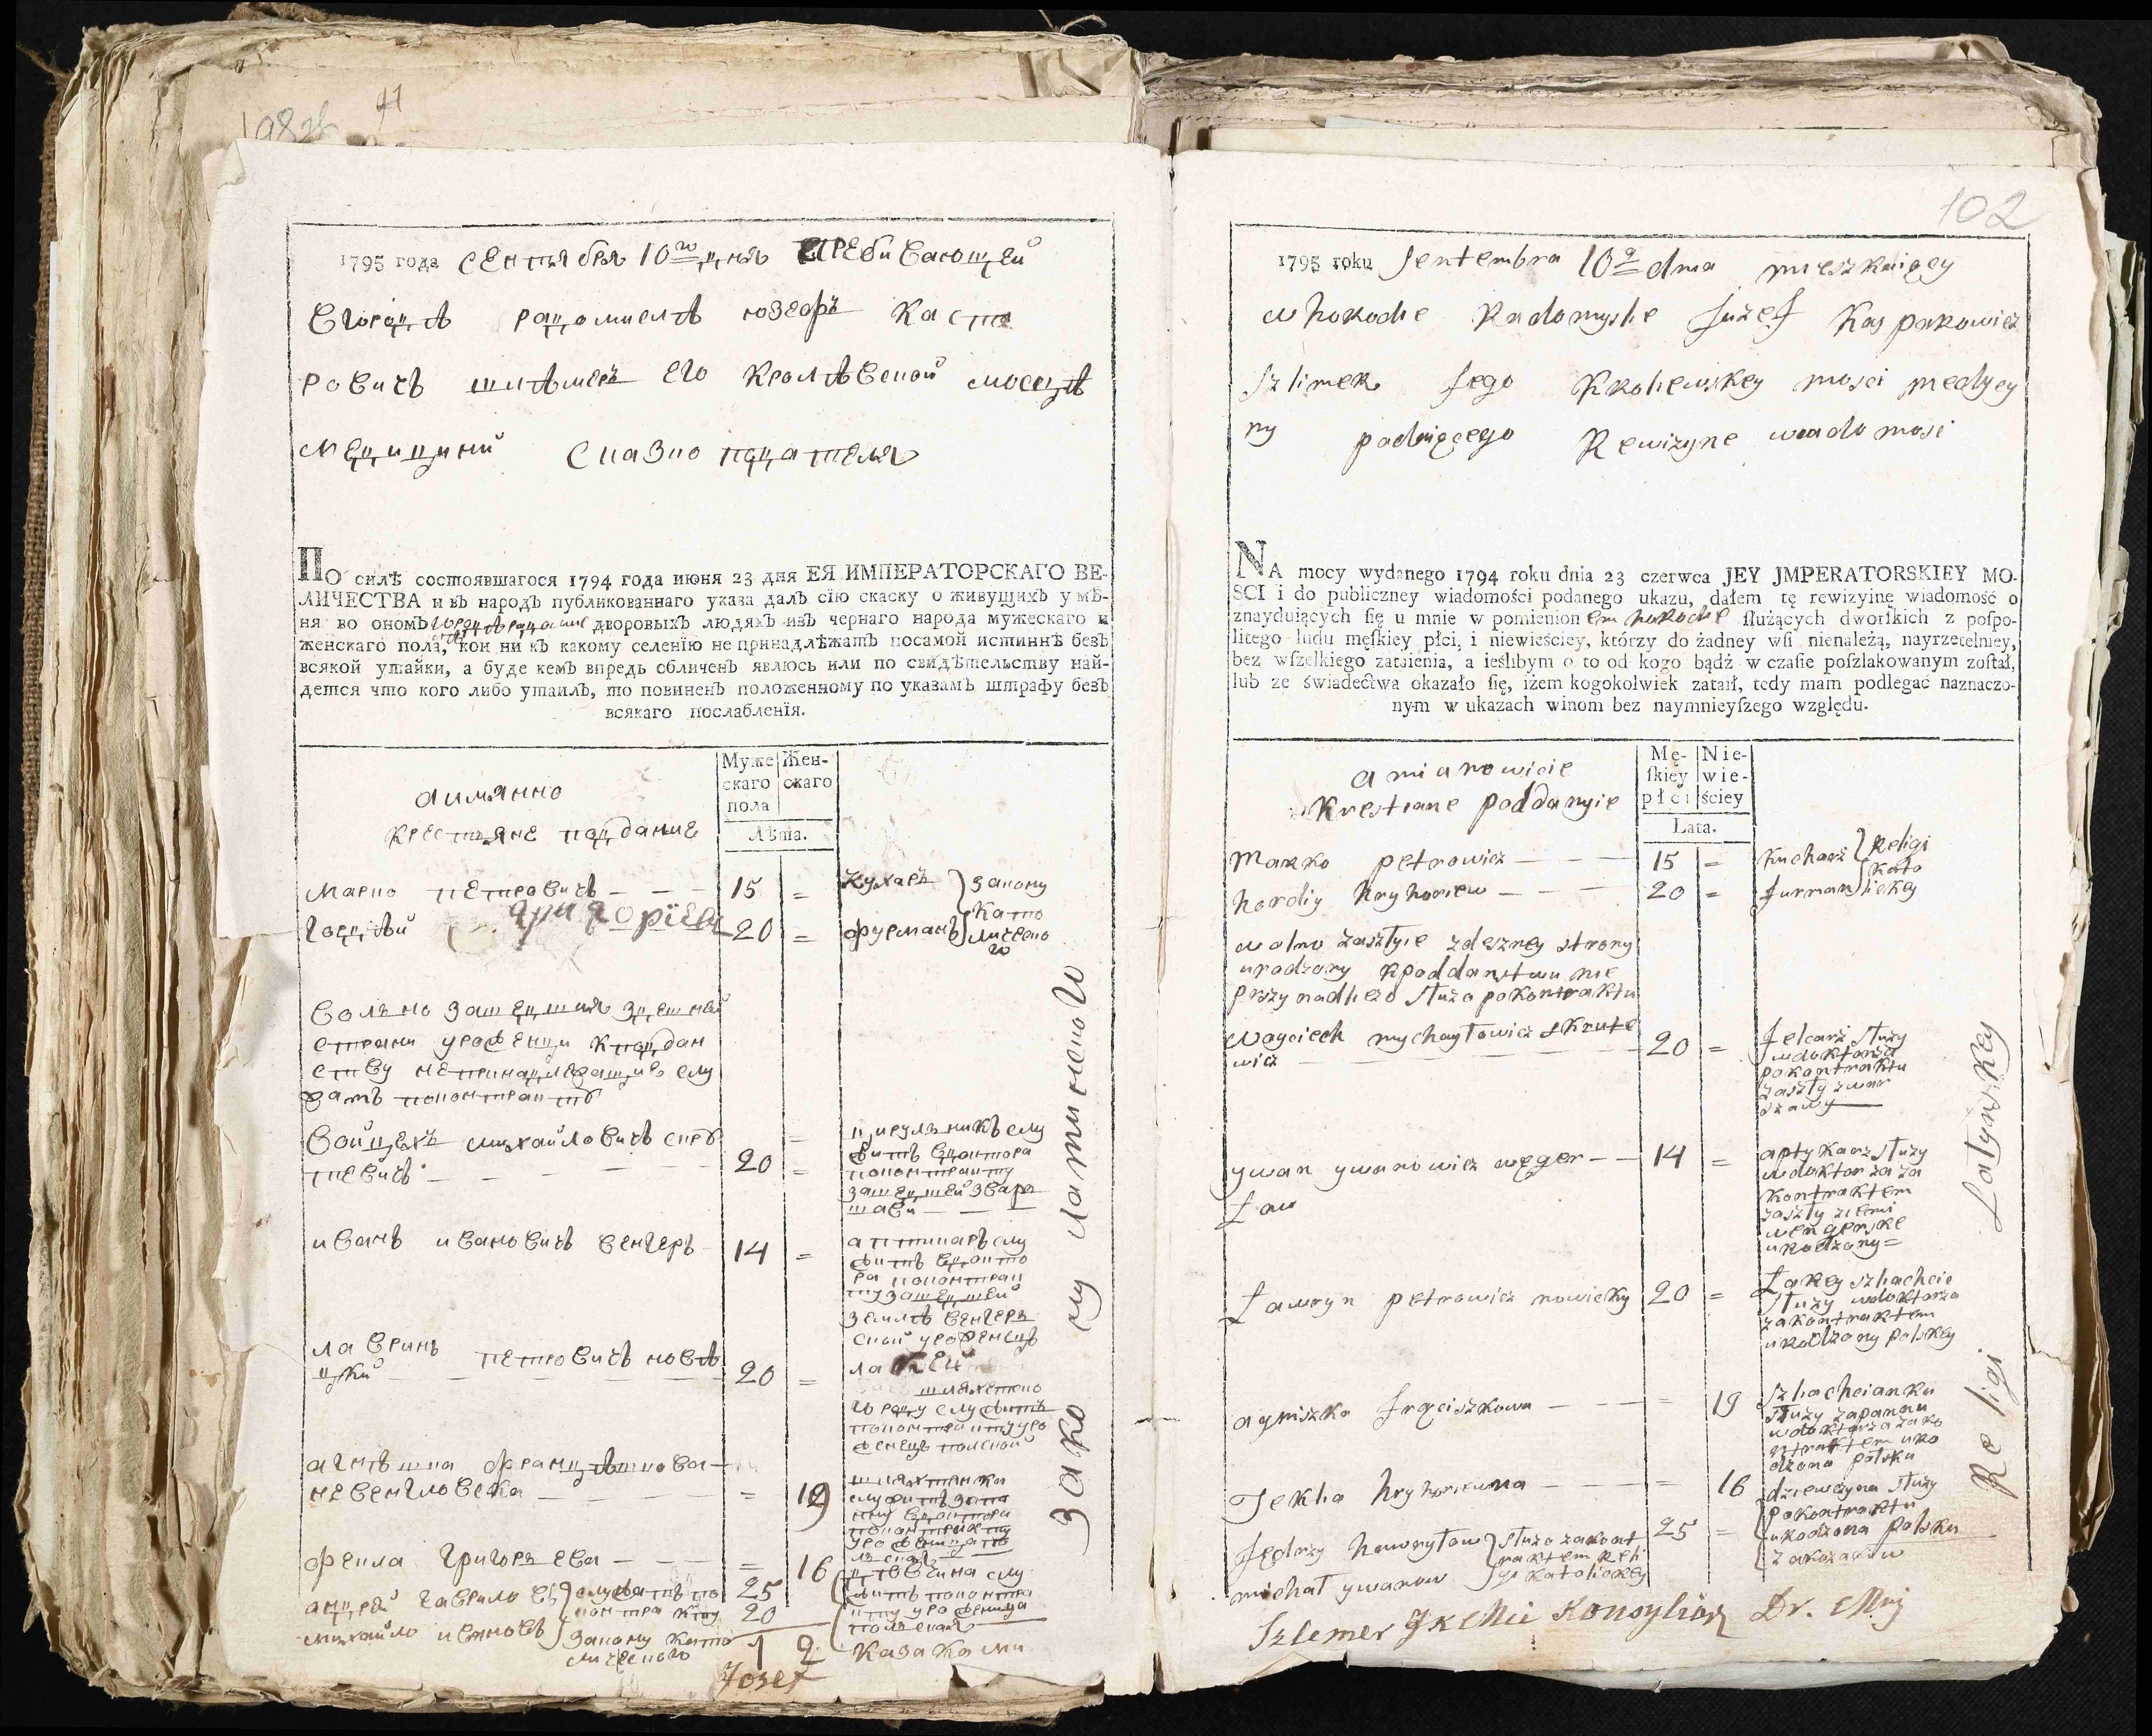 41
1795 года сентября 10го дня пребивающей
вгородѣ радомислѣ юзефъ каспе
ровичъ шлѣмеръ его кролѣвской мосцѣ
медицини сказко подателя
ПО силѣ состоявшагося 1794 года июня 23 дня ЕЯ ИМПЕРАТОРСКАГО ВЕ-
ЛИЧЕСТВА и въ народъ публикованнаго указа далъ сїю скаску о живущихъ у мѣ-
ня во ономъ городѣ дворовыхъ людяхъ изъ чернаго народа мужескаго и
женскаго пола, кои ни къ какому селенїю не принадлѣжатъ посамой истиннѣ безъ
всякой утайки, а буде кемъ впредь обличенъ явлюсь или по свидѣтельству най-
дется что кого либо утаилъ, то повиненъ положенному по указамъ штрафу безъ
всякаго послабленїя.
аимянно
крестяне поддание
Муже Жен-
скаго скаго
пола
Лѣта.
марко петровичъ — — — 15 = кухаръ закону
гордѣй григорїевъ 20 = фурманъ като
лическо
го
волъно зашедшия здешней
страни уроженци к поддан
ству непринадлежащие слу
жатъ поконтрактѣ
войцехъ михайловичъ скрѣ
тевичъ — — — 20 = цирулъникъ слу
житъ вдоктора
поконтракту
зашедшей звар
шави — — —
иванъ ивановичъ венгеръ 14 = аптикаръ слу
житъ вдокто
ра поконтрак
ту зашедшей
землѣ венгер
ской уроженецъ
лавринъ петровичъ новѣ
цкий — — — 20 = лакей
шляхетско
го роду служитъ
поконтракту уро
женецъ полской
агнѣшка францѣшкова —
— — — = 19 шляхтянка
служитъ запа
нну вдоктора
поконтракту
уроженица по
лская
фекла григорьева — — — = 16 дѣвчина слу
житъ поконтра
кту уроженица
полская
андрей гаврилов служатъ по 25
михайло иванов контракту 20
закону като
лического
1 2 казаками
Закону латинского
Jozef
102
1795 roku Sentembra 10go dnia mieszkaiącey
whorodie Radomyslie Juzef Kasparowicz
Szlimer Jego Krolewskey mosci medycy
ny podaiącego Rewizyine wiadomosi
NA mocy wydanego 1794 roku dnia 23 czerwca JEY JMPERATORSKIEY MO-
SCI i do publiczney wiadomości podanego ukazu, dałem tę rewizyinę wiadomość o
znayduiących ſię u mnie w pomienionem horodie ſłużących dworſkich z poſpo-
litego ludu męſkiey płci, i niewieściey, którzy do żadney wſi nienależą, nayrzetelniey,
bez wſzelkiego zataienia, a ieślibym o to od kogo bądź w czaſie poſzlakowanym zoſtał,
lub ze świadectwa okazało ſię, iżem kogokolwiek zataił, tedy mam podlegać naznaczo-
nym w ukazach winom bez naymnieyſzego względu.
amianowicie
Krestiane poddanyie
Mę- Nie-
ſkiey wie-
płci ściey
Lata.
Marko petrowicz — — — 15 = Kucharz Religi
hordiy hryhoriew — — — 20 = furman kato
lickey
wolno zasztyie zdeszney strony
urodzony kpoddanstwu nie
przynadliezo służo pokontraktu
Woyciech mychayłowicz skrute
wicz — — — 20 = felcarz służy
wdoktorża
pokontraktu
zaszły zwar
szawy
ywan ywanowicz węger — — 14 = aptykarz służy
wdoktorza za
kontraktem
zaszły ziemi
wengerske
urodzony =
Ław
Ławryn petrowicz nowicky 20 = Lakey szliachcic
służy wdoktorza
zakontraktem
urodzony polskey
agniszka frąciszkowa — — — = 19 szliachcianka
służy zapannu
wdoktorza zako
ntraktem uro
dzona polska
Tekla hryhoriewna — — — = 16 dziewczyna służy
pokontraktu
urodzona polska
Jędrzy hawryłow służo zakont 25 = zakozakiw
michał ywanow raktem Reli
gi katolickey
Religi Łatynskey
Szlemer JKMci Konsyliarz Dr. Mnj